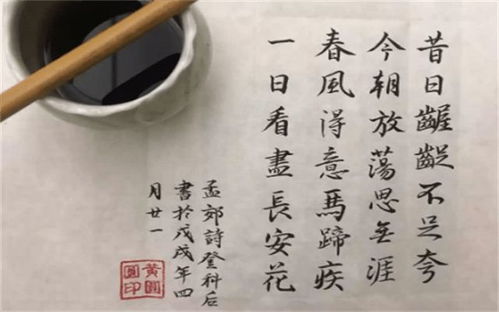 昔日齷齪不足夸
今朝放蕩思無涯
春風得意馬蹄疾
一日看盡長安花
孟郊詩登科后
書於戊戌年四
月廿一
黃圓
圓印